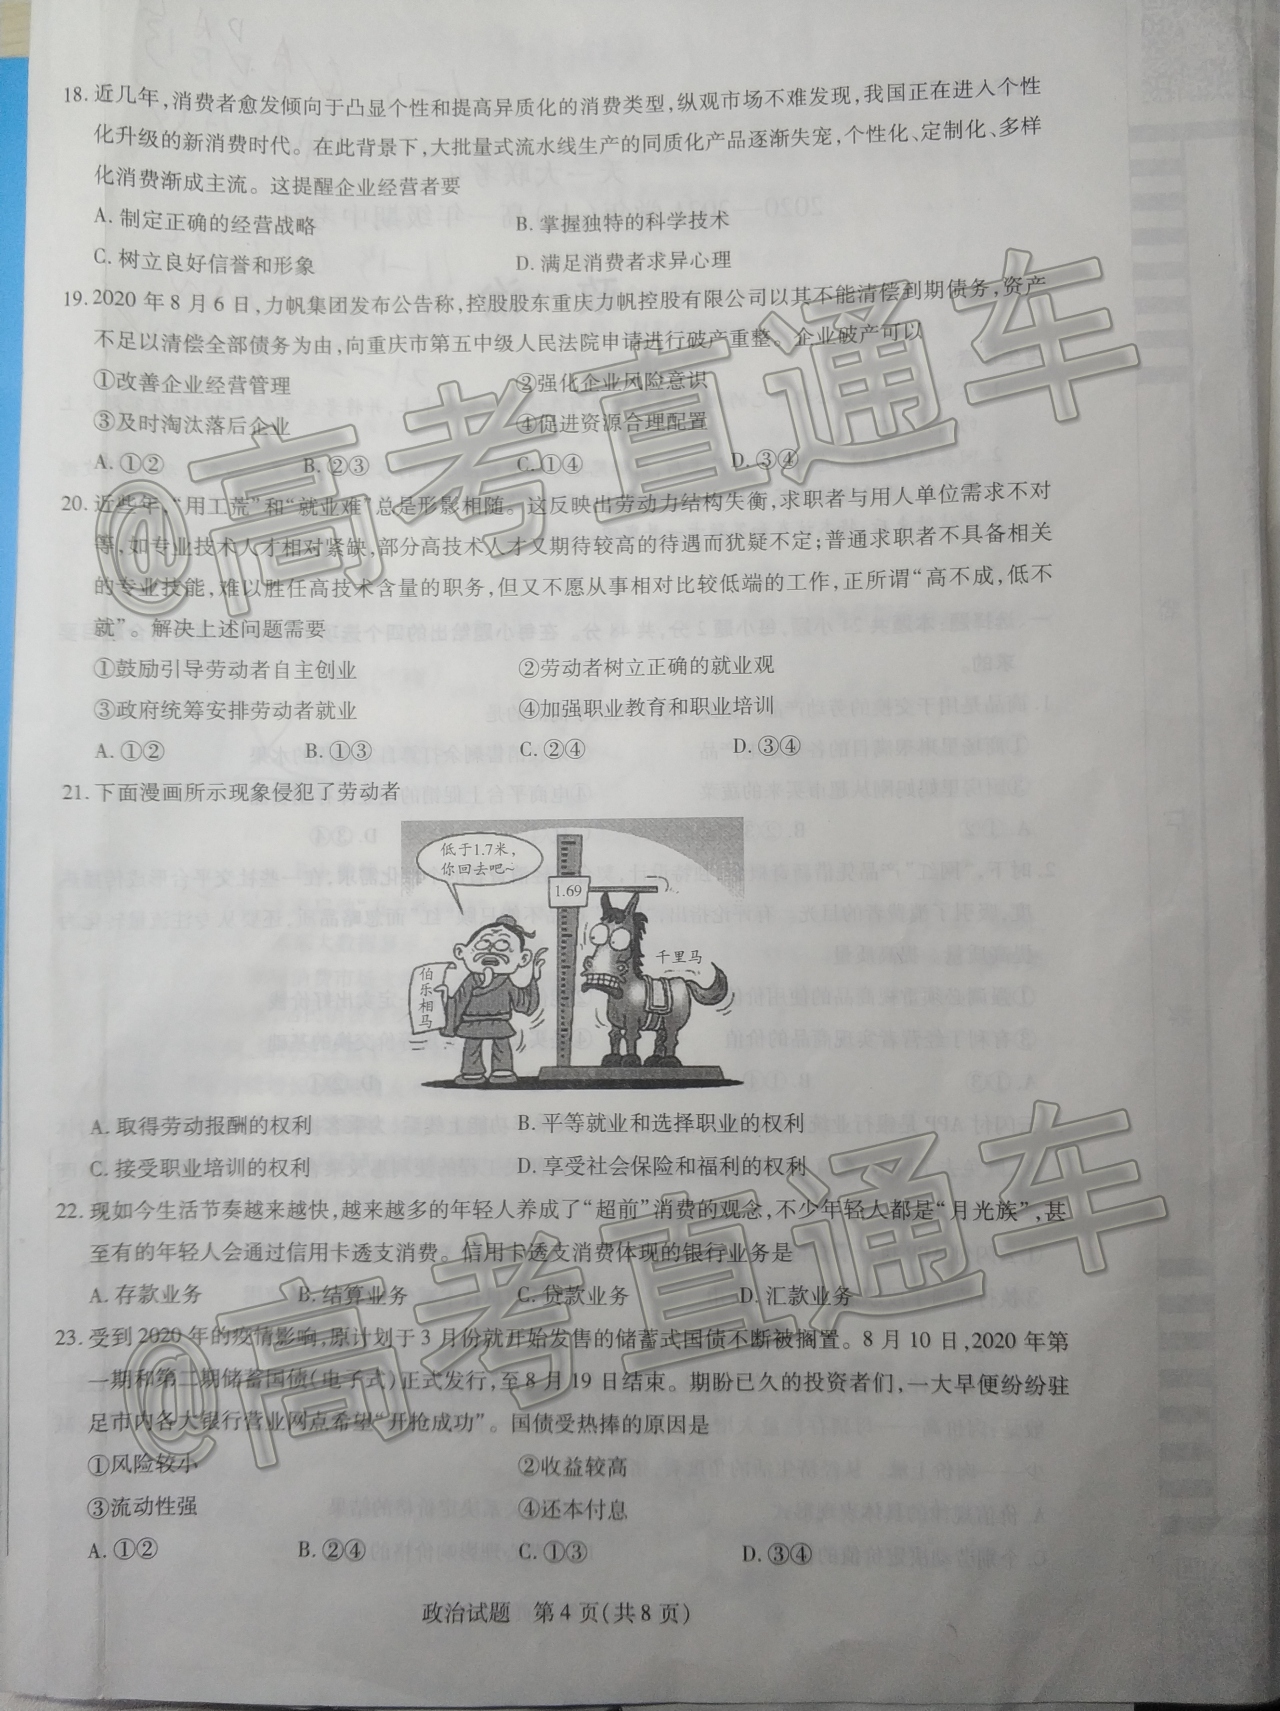 18. 近几年，消费者愈发倾向于凸显个性和提高异质化的消费类型，纵观市场不难发现，我国正在进入个性
化升级的新消费时代。在此背景下，大批量式流水线生产的同质化产品逐渐失宠，个性化、定制化、多样
化消费渐成主流。这提醒企业经营者要
A. 制定正确的经营战略 B. 掌握独特的科学技术
C. 树立良好信誉和形象 D. 满足消费者求异心理
19. 2020 年 8 月 6 日，力帆集团发布公告称，控股股东重庆力帆控股有限公司以其不能清偿到期债务，资产
不足以清偿全部债务为由，向重庆市第五中级人民法院申请进行破产重整。企业破产可以
①改善企业经营管理 ②强化企业风险意识
③及时淘汰落后企业 ④促进资源合理配置
A. ①② B. ②③ C. ①④ D. ③④
20. 近些年，“用工荒”和“就业难”总是形影相随。这反映出劳动力结构失衡，求职者与用人单位需求不对
等，如专业技术人才相对紧缺，部分高技术人才又期待较高的待遇而犹疑不定；普通求职者不具备相关
的专业技能，难以胜任高技术含量的职务，但又不愿从事相对比较低端的工作，正所谓“高不成，低不
就”。解决上述问题需要
①鼓励引导劳动者自主创业 ②劳动者树立正确的就业观
③政府统筹安排劳动者就业 ④加强职业教育和职业培训
A. ①② B. ①③ C. ②④ D. ③④
21. 下面漫画所示现象侵犯了劳动者
低于1.7米，
你回去吧~
1.69
千里马
伯乐相马
A. 取得劳动报酬的权利 B. 平等就业和选择职业的权利
C. 接受职业培训的权利 D. 享受社会保险和福利的权利
22. 现如今生活节奏越来越快，越来越多的年轻人养成了“超前”消费的观念，不少年轻人都是“月光族”，甚
至有的年轻人会通过信用卡透支消费。信用卡透支消费体现的银行业务是
A. 存款业务 B. 结算业务 C. 贷款业务 D. 汇款业务
23. 受到 2020 年的疫情影响，原计划于 3 月份就开始发售的储蓄式国债不断被搁置。8 月 10 日，2020 年第
一期和第二期储蓄国债（电子式）正式发行，至 8 月 19 日结束。期盼已久的投资者们，一大早便纷纷驻
足市内各大银行营业网点希望“开枪成功”。国债受热捧的原因是
①风险较小 ②收益较高
③流动性强 ④还本付息
A. ①② B. ②④ C. ①③ D. ③④
政治试题 第 4 页（共 8 页）
@高考直通车
@高考直通车